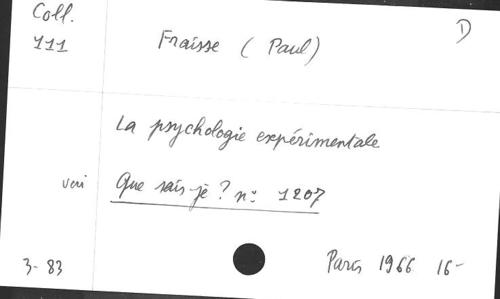 Coll.
111
Fraisse (Paul)
D
La psychologie expérimentale
voir Que sais-je? n° 1207
3-83
Paris 1966 16-